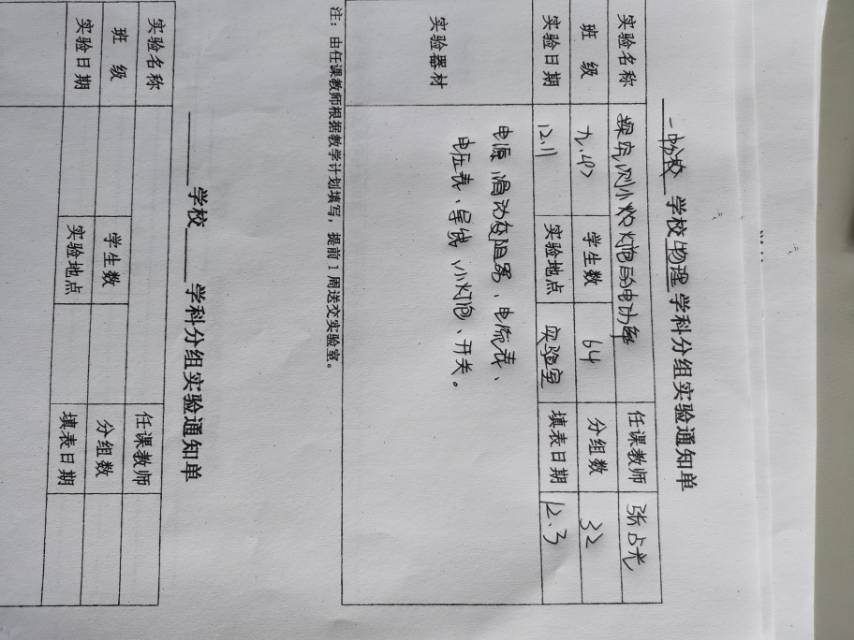 一中分校 学校 物理 学科分组实验通知单
实验名称 探究测小灯泡的电功率 任课教师 张占光
班 级 学生数 64 分组数 32
实验日期 12.11 实验地点 实验室 填表日期 12.3
实验器材 电源、滑动变阻器、电流表、
电压表、导线、小灯泡、开关。
注：由任课教师根据教学计划填写，提前1周送交实验室。
学校 学科分组实验通知单
实验名称 任课教师
班 级 学生数 分组数
实验日期 实验地点 填表日期